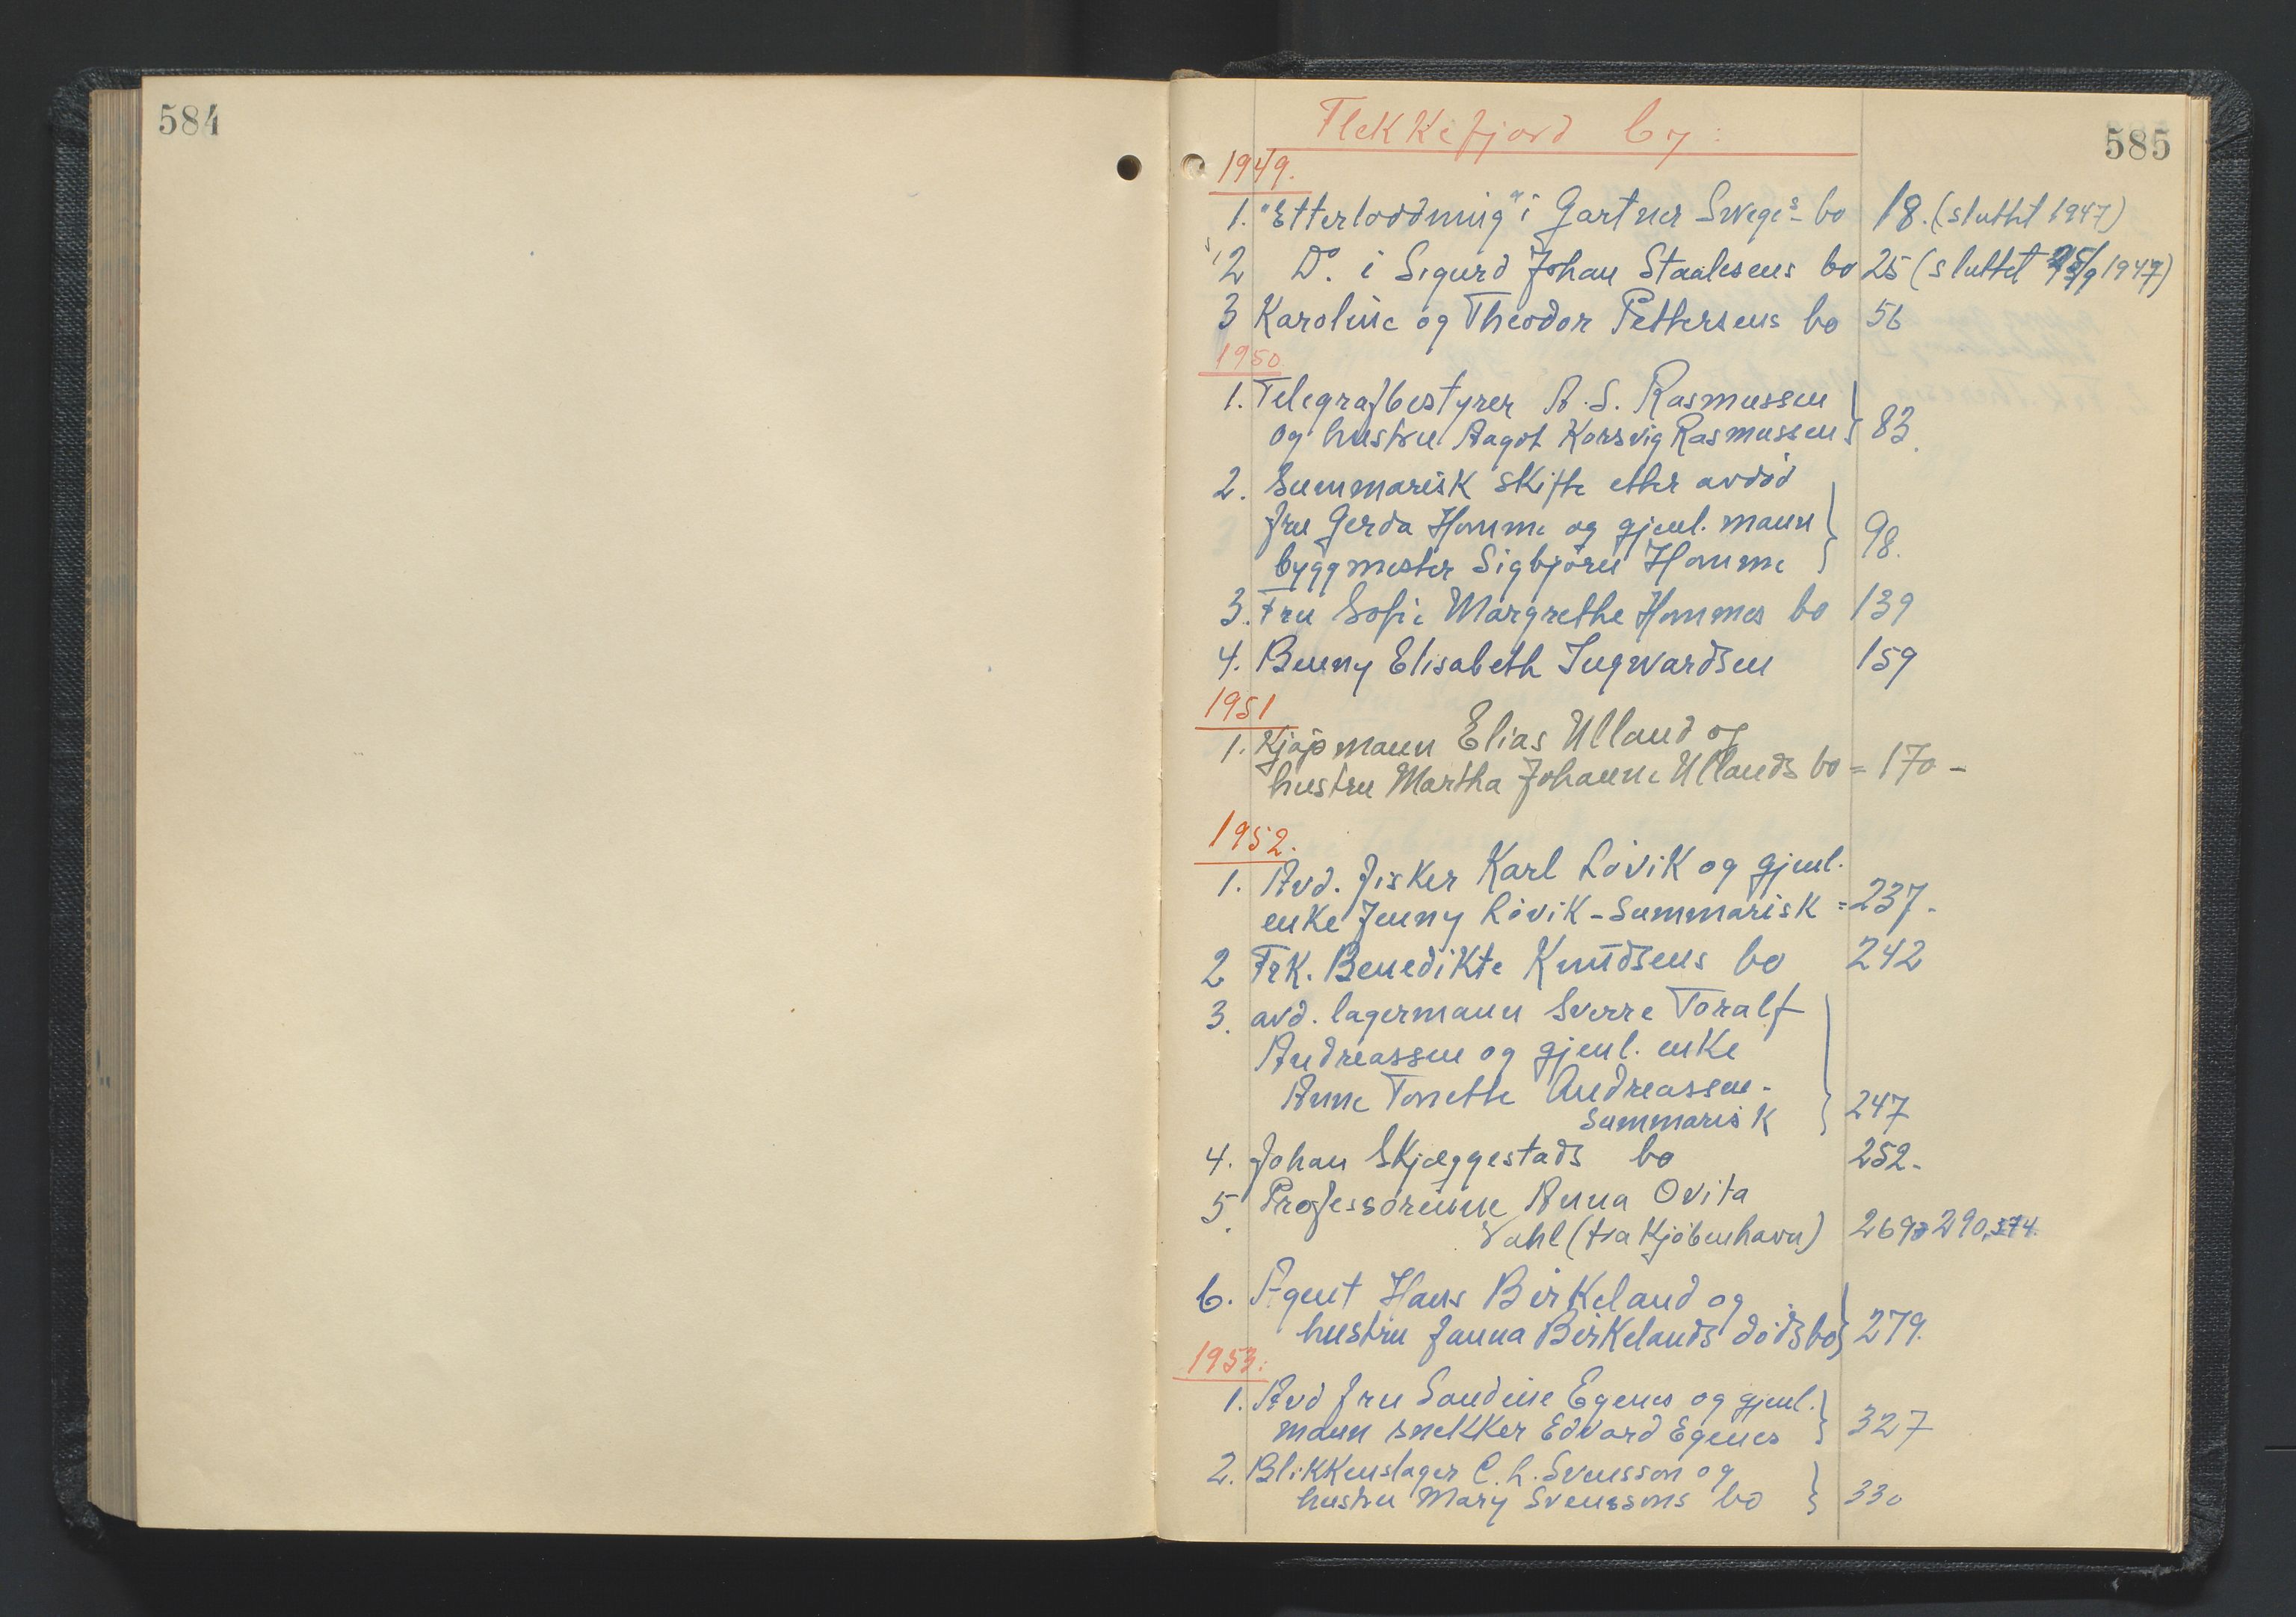 584
585
Flekkefjord by:
1949.
1. "Etterloddning" i Gartner Sweges bo 18. (sluttet 1947)
2 Do. i Sigurd Johan Staalesens bo 25 (sluttet 25/9 1947)
3 Karoline og Theodor Pettersens bo 56
1950
1. Telegrafbestyrer A. S. Rasmussen
og hustru Aagot Korsvig Rasmussen 83.
2. Summarisk skifte etter avdød
fru Gerda Homme og gjenl. mann
byggmester Sigbjørn Homme 98.
3. Fru Sofie Margrethe Hommes bo 139
4. Benny Elisabeth Ingwardsen 159
1951
1. Kjøpmann Elias Ulland og
hustru Martha Johanne Ullands bo = 170 -
1952.
1. Avd. fisker Karl Løvik og gjenl.
enke Jenny Løvik - Summarisk = 237.
2 Frk. Benedikte Knudsens bo 242
3. avd. lagermann Sverre Toralf
Andreassen og gjenl. enke
Anne Tonette Andreassen.
Summarisk 247
4. Johan Skjæggestads bo 252.
5. Professorinne Anna Ovita
Vahl (fra Kjøbenhavn) 269, 290, 374.
6. Agent Hans Birkeland og
hustru Janna Birkelands dødsbo 279.
1953:
1. Avd fru Sandine Egenes og gjenl.
mann snekker Edvard Egenes 327
2. Blikkenslager C. L. Svensson og
hustru Mary Svenssons bo 330